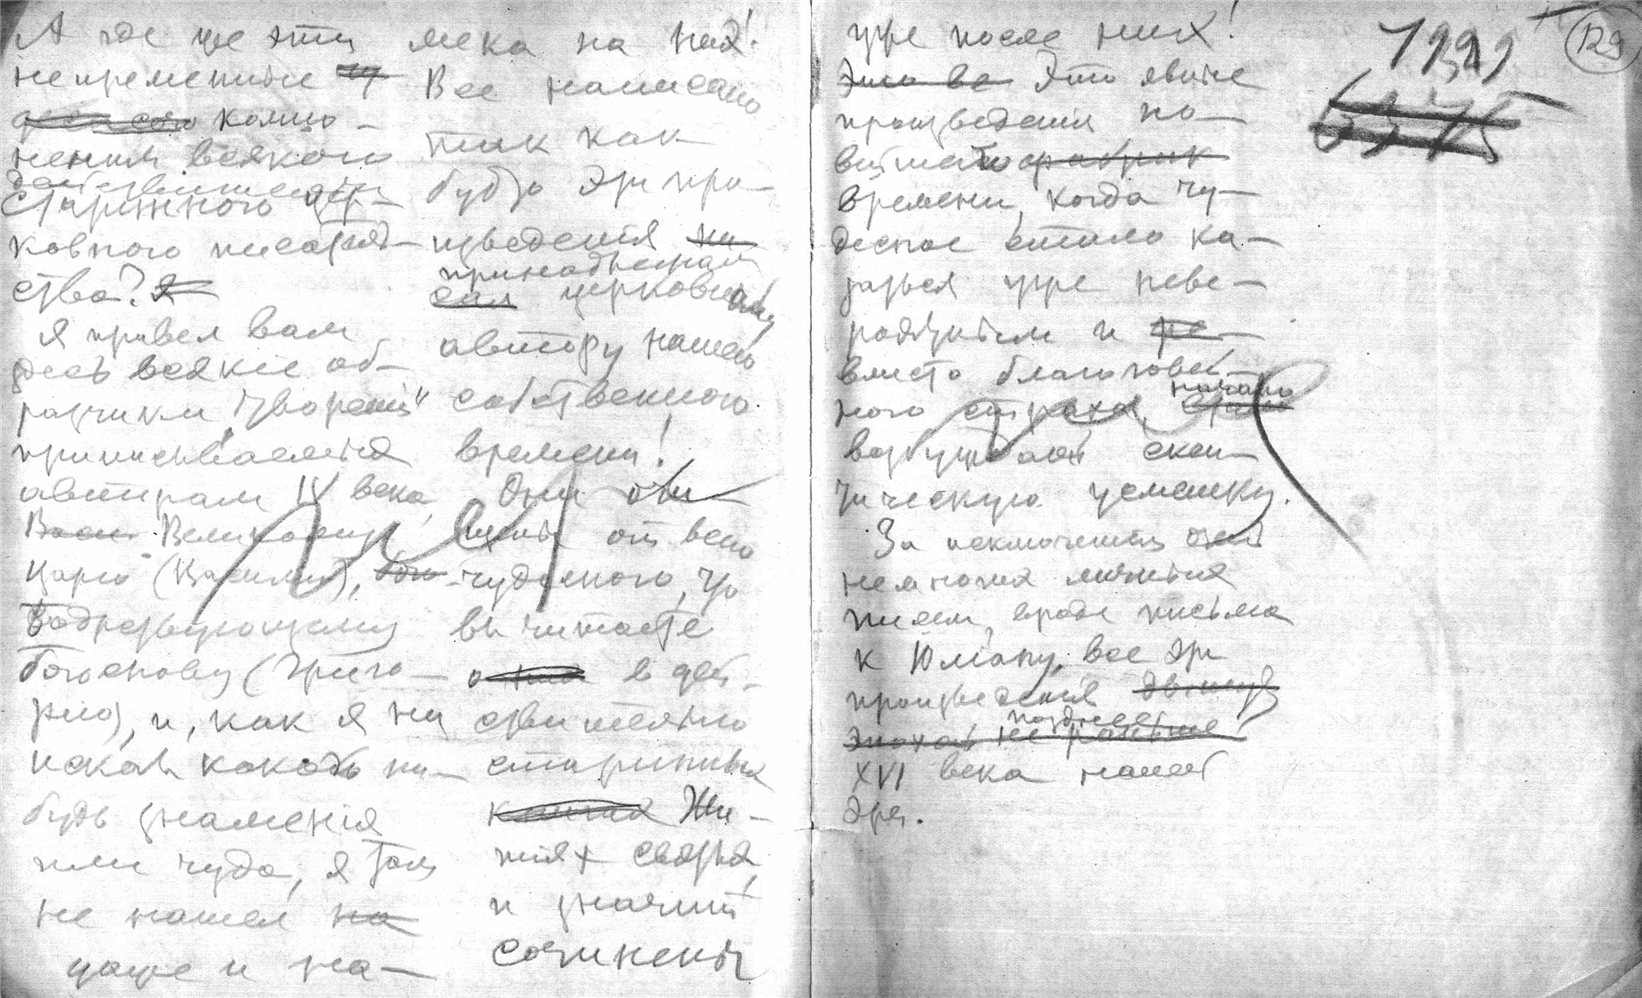 А где же эти
непременные
компо-
ненты всякого
действительно
старинного цер-
ковного писатель-
ства?
Я привел вам
здесь всякие об-
разчики "творений"
приписываемых
авторам IV века,
Великому
царю (Василию),
Бодрствующему
богослову (Григо-
рию), и, как я ни
искал какого ни-
будь знаменiя
или чуда, я там
не нашел
даже и на-
мека на них!
Все написано
так как
будто эти про-
изведенiя
принадлежат
церковному
автору нашего
собственного
времени!
Они
от всего
чудесного, что
вы читаете
в дей-
ствительно
старинных
Жи-
тiях святых,
и значит
сочинены
уже после них!
Это явные
произведения но-
вейшего
времени, когда чу-
десное стало ка-
заться уже неве-
роятным и
вместо благоговей-
ного страха, начало
возбуждать скеп-
тическую усмешку.
За исключением
немногих личных
писем, вроде письма
к Юлиану, все эти
произведения
позднее
XVI века нашей
эры.
129